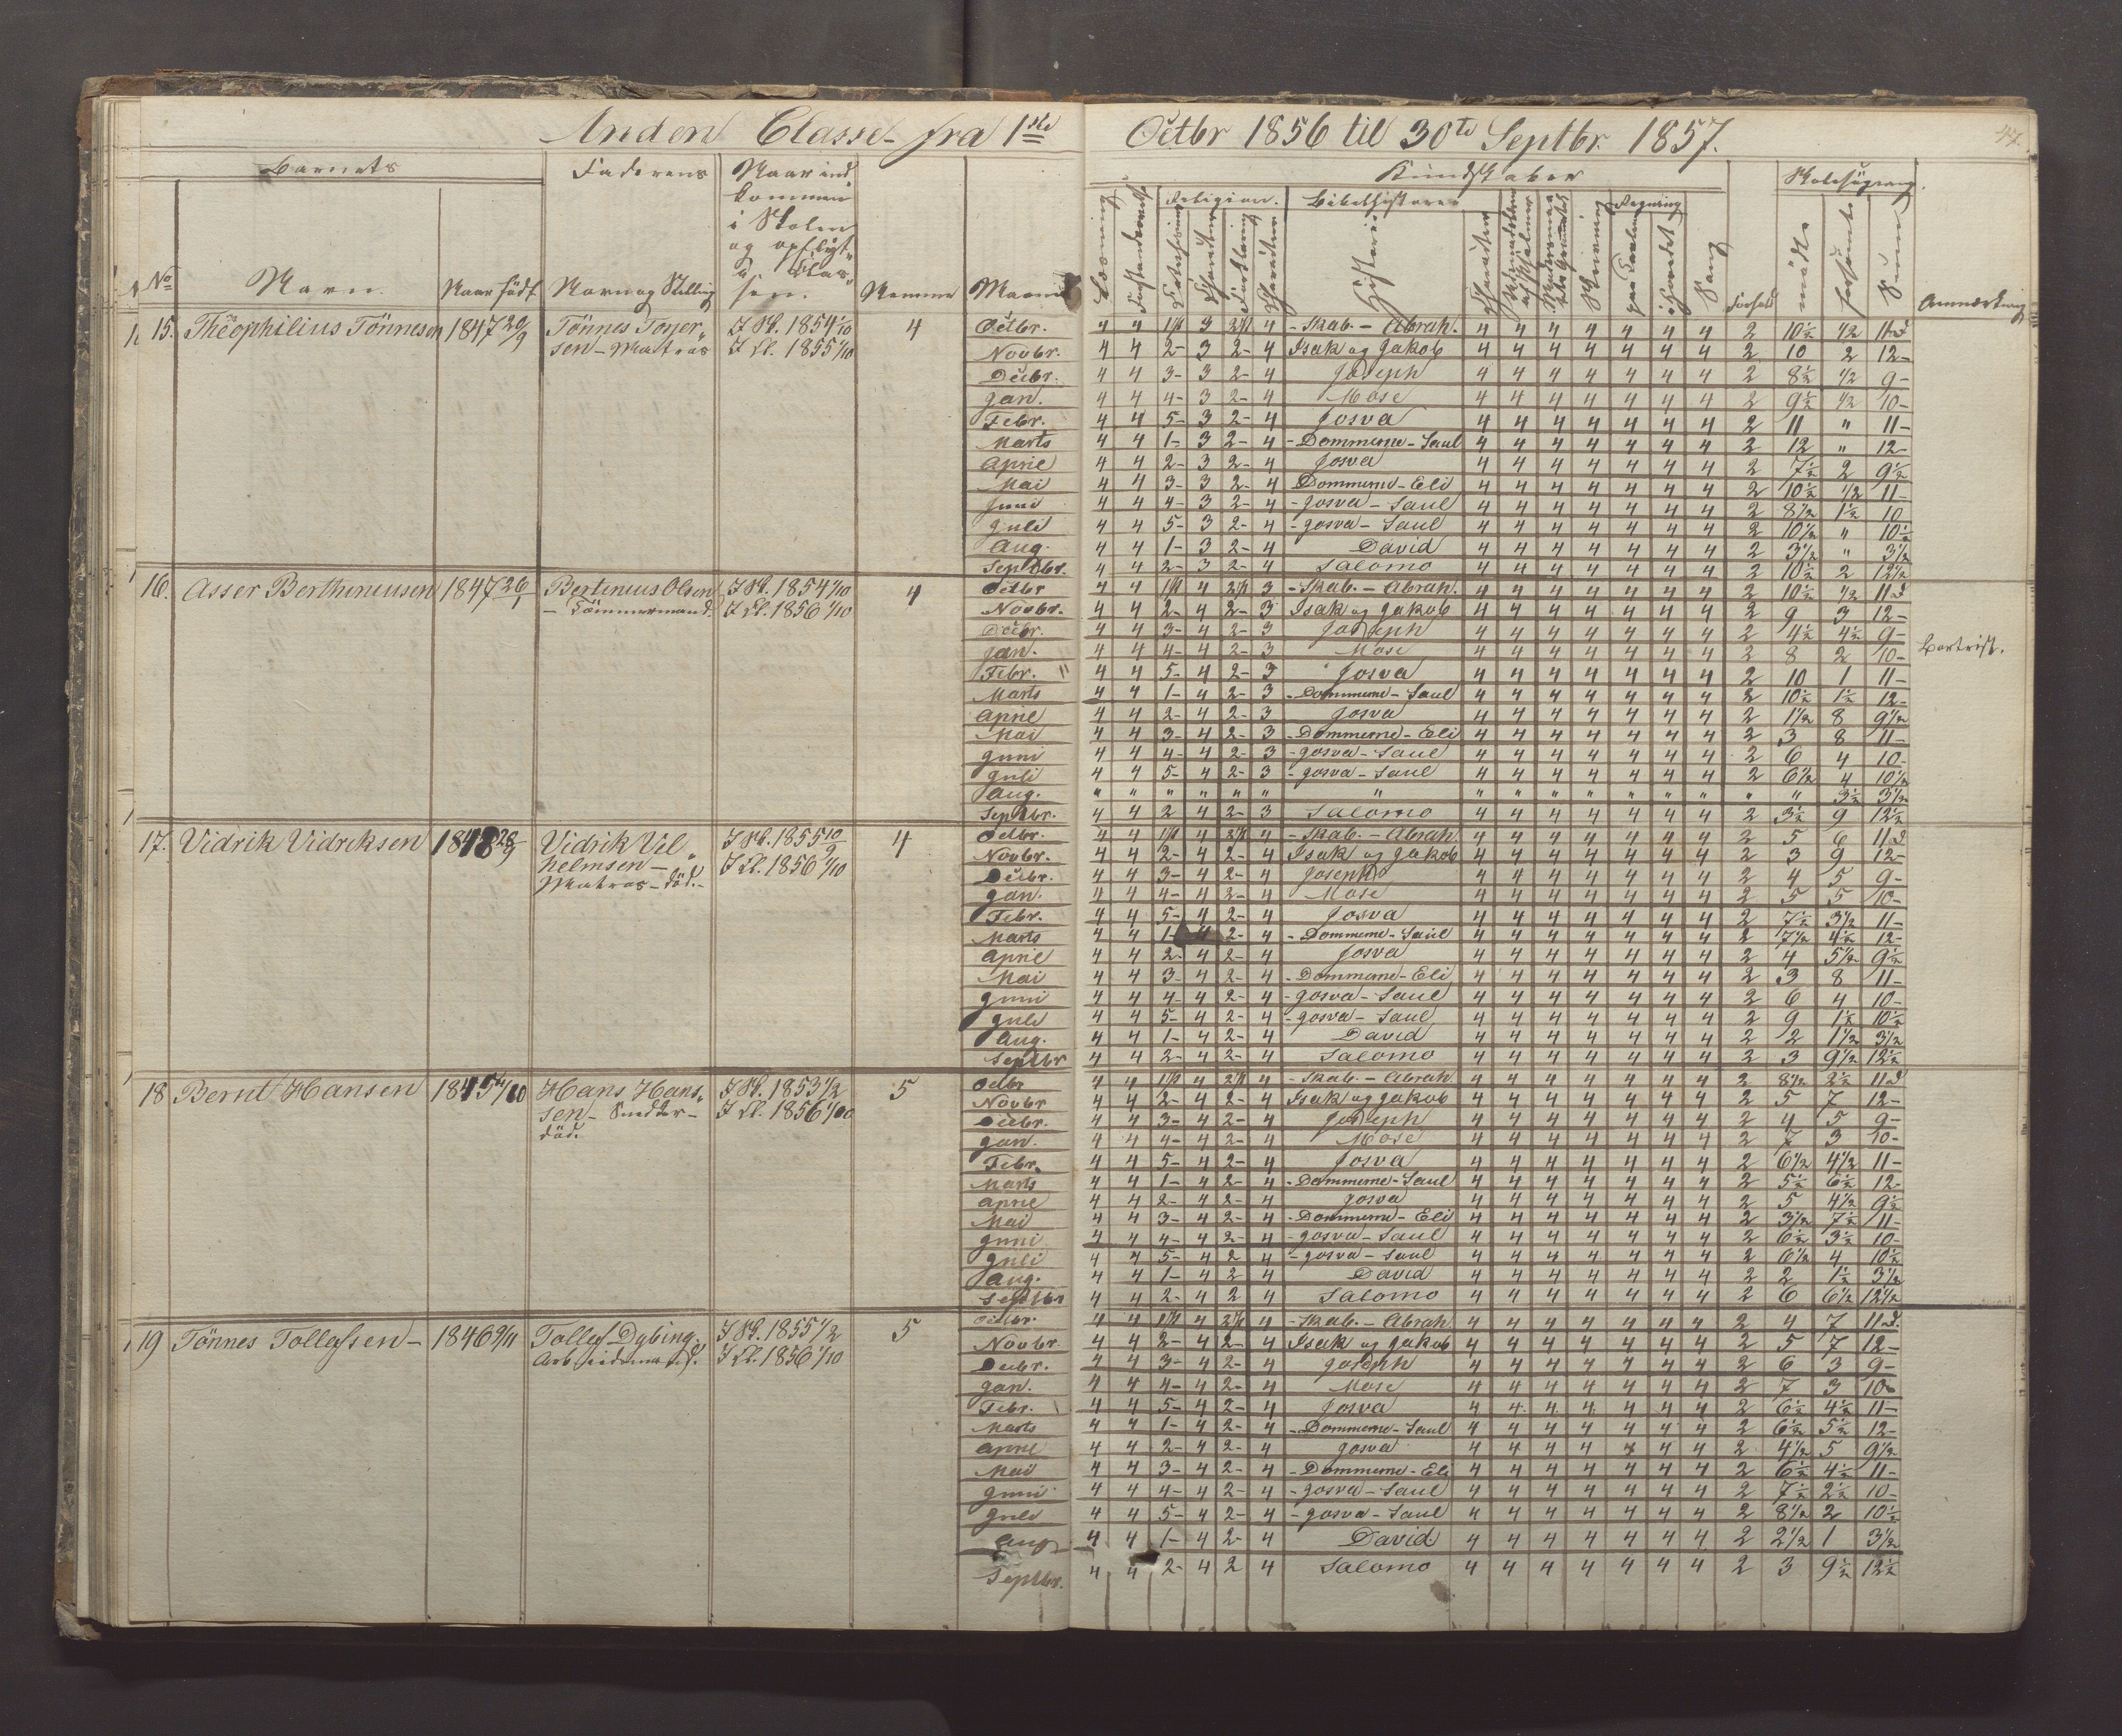 Anden Classe fra 1ste Octbr 1856 til 30te Septbr. 1857.
Barnets Faderens Naar ind kommen i Skolen og opflyt. i Clas sen. Kundskaber Skolesøgning.
No Navn. Naar født Navn og Stilling Nemme Maaned Læsning Forstandsøvelse Religion. Bibelhistorie Regning Sang Forhold mødte forsømte Summa Anmærkning
15. Theophilius Tönnesen 1847 20/9 Tönnes Tonner, I Sk. 1854 1/10 4 Octbr. 4 4 1 3 2 4 - Skab. - Abrah. 4 4 4 4 4 4 4 2 10½ ½ 11 d
sen - Matros I Cl. 1855 1/10 Novbr. 4 4 2- 3 2- 4 Isak og Jakob 4 4 4 4 4 4 4 2 10 2 12-
Decbr. 4 4 3- 3 2- 4 Joseph 4 4 4 4 4 4 4 2 8½ ½ 9-
Jan. 4 4 4- 3 2- 4 Mose 4 4 4 4 4 4 4 2 9½ ½ 10-
Febr. 4 4 5- 3 2- 4 Josva 4 4 4 4 4 4 4 2 11 " 11-
Marts 4 4 1- 3 2- 4 - Dommerne - Saul 4 4 4 4 4 4 4 2 12 " 12-
April 4 4 2- 3 2- 4 Josva 4 4 4 4 4 4 4 2 7½ 2 9½
Mai 4 4 3- 3 2- 4 Dommerne - Eli 4 4 4 4 4 4 4 2 10½ ½ 11-
Juni 4 4 4- 3 2- 4 - Josva - Saul 4 4 4 4 4 4 4 2 8½ 1½ 10
Juli 4 4 5- 3 2- 4 - Josva - Saul 4 4 4 4 4 4 4 2 10½ " 10½
Aug. 4 4 1- 3 2- 4 David 4 4 4 4 4 4 4 2 3½ " 3½
Septbr. 4 4 2- 3 2- 4 Salomo 4 4 4 4 4 4 4 2 10½ 2 12½
16. Asser Berthiniusen 1847 26/1 Bertinius Olsen I Sk. 1854 1/10 4 Octbr 4 4 1 4 2 3 - Skab. - Abrah. 4 4 4 4 4 4 4 2 10½ ½ 11 d
- Tömmermand. I Cl. 1856 1/10 Novbr. 4 4 2- 4 2- 3 Isak og Jakob 4 4 4 4 4 4 4 2 9 3 12-
Decbr. 4 4 3- 4 2- 3 Joseph 4 4 4 4 4 4 4 2 4½ 4½ 9- Bortreist.
Jan. 4 4 4- 4 2- 3 Mose 4 4 4 4 4 4 4 2 8 2 10-
Febr. " 4 4 5- 4 2- 3 Josva 4 4 4 4 4 4 4 2 10 1 11-
Marts 4 4 1- 4 2- 3 - Dommerne - Saul 4 4 4 4 4 4 4 2 10½ 1½ 12-
April 4 4 2- 4 2- 3 Josva 4 4 4 4 4 4 4 2 1½ 8 9½
Mai 4 4 3- 4 2- 3 - Dommerne - Eli 4 4 4 4 4 4 4 2 3 8 11-
Juni 4 4 4- 4 2- 3 - Josva - Saul 4 4 4 4 4 4 4 2 6 4 10-
Juli 4 4 5- 4 2- 3 - Josva - Saul 4 4 4 4 4 4 4 2 6½ 4 10½
Aug. " " " " " " " " " " " " " " " " 3½ 3½
Septbr. 4 4 2 4 2- 3 Salomo 4 4 4 4 4 4 4 2 3½ 9 12½
17. Vidrik Vidriksen 1848 28/9 Vidrik Vil, I Sk. 1855 10/9 4 Octbr. 4 4 1 4 2 4 - Skab. - Abrah 4 4 4 4 4 4 4 2 5 6 11 d
helmsen - I Cl. 1856 1/10 Novbr. 4 4 2- 4 2- 4 Isak og Jakob 4 4 4 4 4 4 4 2 3 9 12-
Matros - död. - Decbr. 4 4 3- 4 2- 4 Joseph 4 4 4 4 4 4 4 2 4 5 9-
Jan. 4 4 4- 4 2- 4 Mose 4 4 4 4 4 4 4 2 5 5 10-
Febr. 4 4 5- 4 2- 4 Josva 4 4 4 4 4 4 4 2 7½ 3½ 11-
Marts 4 4 1- 4 2- 4 - Dommerne - Saul 4 4 4 4 4 4 4 2 7½ 4½ 12-
April 4 4 2- 4 2- 4 Josva 4 4 4 4 4 4 4 2 4 5½ 9½
Mai 4 4 3- 4 2- 4 - Dommerne - Eli 4 4 4 4 4 4 4 2 3 8 11-
Juni 4 4 4- 4 2- 4 - Josva - Saul 4 4 4 4 4 4 4 2 6 4 10-
Juli 4 4 5- 4 2- 4 - Josva - Saul 4 4 4 4 4 4 4 2 9 1½ 10½
Aug. 4 4 1- 4 2- 4 David 4 4 4 4 4 4 4 2 2 1½ 3½
Septbr 4 4 2- 4 2- 4 Salomo 4 4 4 4 4 4 4 2 3 9½ 12½
18 Bernt Hansen 1845 4/10 Hans Hans, I Sk. 1853 1/2 5 Octbr 4 4 1 4 2 4 - Skab. - Abrah 4 4 4 4 4 4 4 2 8½ 2½ 11 d
sen - Smeder - I Cl. 1856 1/10 Novbr 4 4 2- 4 2- 4 Isak og Jakob 4 4 4 4 4 4 4 2 5 7 12-
död. Decbr. 4 4 3- 4 2- 4 Joseph 4 4 4 4 4 4 4 2 4 5 9-
Jan. 4 4 4- 4 2- 4 Mose 4 4 4 4 4 4 4 2 7 3 10-
Febr. 4 4 5- 4 2- 4 Josva 4 4 4 4 4 4 4 2 6½ 4½ 11-
Marts 4 4 1- 4 2- 4 - Dommerne - Saul 4 4 4 4 4 4 4 2 5½ 6½ 12-
April 4 4 2- 4 2- 4 Josva 4 4 4 4 4 4 4 2 5 4½ 9½
Mai 4 4 3- 4 2- 4 - Dommerne - Eli 4 4 4 4 4 4 4 2 3½ 7½ 11-
Juni 4 4 4- 4 2- 4 - Josva - Saul 4 4 4 4 4 4 4 2 6½ 3½ 10-
Juli 4 4 5- 4 2 4 - Josva - Saul 4 4 4 4 4 4 4 2 6½ 4 10½
Aug. 4 4 1- 4 2 4 David 4 4 4 4 4 4 4 2 2 1½ 3½
Septbr 4 4 2- 4 2 4 Salomo 4 4 4 4 4 4 4 2 6 6½ 12½
19 Tönnes Tollefsen - 1846 9/11 Tollef Dybing. I Sk. 1855 1/2 5 Octbr. 4 4 1 4 2 4 - Skab. - Abrah. 4 4 4 4 4 4 4 2 4 7 11 d.
Arbeidsmand. I Cl. 1856 1/10 Novbr 4 4 2- 4 2- 4 Isak og Jakob 4 4 4 4 4 4 4 2 5 7 12-
Decbr. 4 4 3- 4 2- 4 Joseph 4 4 4 4 4 4 4 2 6 3 9-
Jan. 4 4 4- 4 2- 4 Mose 4 4 4 4 4 4 4 2 7 3 10-
Febr. 4 4 5- 4 2- 4 Josva 4 4 4 4 4 4 4 2 6½ 4½ 11-
Marts 4 4 1- 4 2- 4 - Dommerne - Saul 4 4 4 4 4 4 4 2 6½ 5½ 12-
April 4 4 2- 4 2- 4 Josva 4 4 4 4 4 4 4 2 4½ 5 9½
Mai 4 4 3- 4 2- 4 - Dommerne - Eli 4 4 4 4 4 4 4 2 6½ 4½ 11-
Juni 4 4 4- 4 2- 4 - Josva - Saul 4 4 4 4 4 4 4 2 7½ 2½ 10-
Juli 4 4 5- 4 2- 4 - Josva - Saul 4 4 4 4 4 4 4 2 8½ 2 10½
Aug. 4 4 1- 4 2- 4 David 4 4 4 4 4 4 4 2 2½ 1 3½
Septbr. 4 4 2- 4 2 4 Salomo 4 4 4 4 4 4 4 2 3 9½ 12½